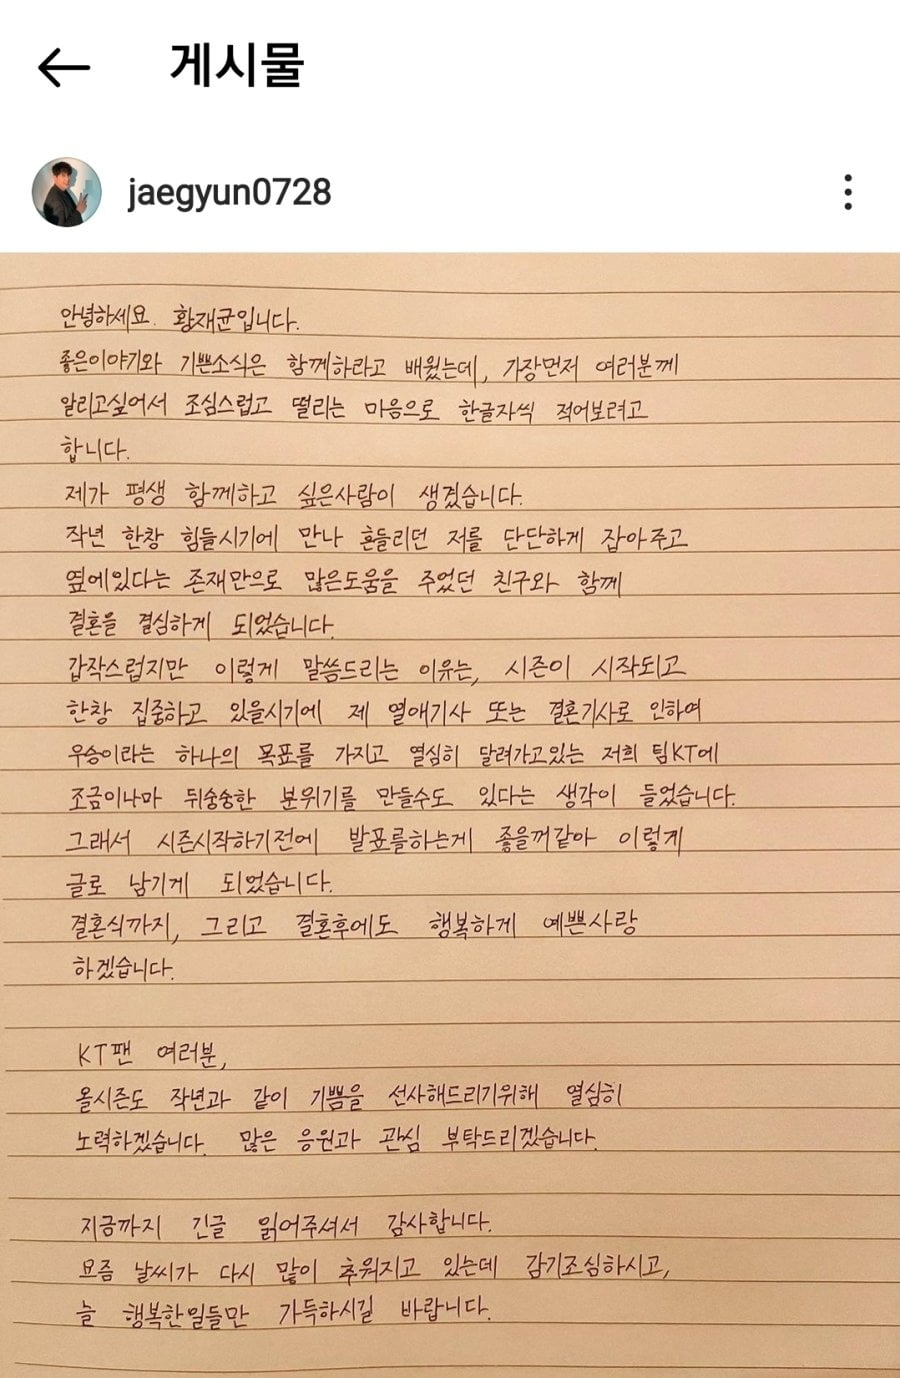 게시물
jaegyun0728
안녕하세요. 황재균입니다.
좋은이야기와 기쁜소식은 함께하라고 배웠는데, 가장먼저 여러분께
알리고싶어서 조심스럽고 떨리는 마음으로 한글자씩 적어보려고
합니다.
제가 평생 함께하고 싶은사람이 생겼습니다.
작년 한창 힘들시기에 만나 흔들리던 저를 단단하게 잡아주고
옆에있다는 존재만으로 많은도움을 주었던 친구와 함께
결혼을 결심하게 되었습니다.
갑작스럽지만 이렇게 말씀드리는 이유는, 시즌이 시작되고
한창 집중하고 있을시기에 제 열애기사 또는 결혼기사로 인하여
우승이라는 하나의 목표를 가지고 열심히 달려가고있는 저희 팀KT에
조금이나마 뒤숭숭한 분위기를 만들수도 있다는 생각이 들었습니다.
그래서 시즌시작하기전에 발표를하는게 좋을꺼같아 이렇게
글로 남기게 되었습니다.
결혼식까지, 그리고 결혼후에도 행복하게 예쁜사랑
하겠습니다.
KT팬 여러분,
올시즌도 작년과 같이 기쁨을 선사해드리기위해 열심히
노력하겠습니다. 많은 응원과 관심 부탁드리겠습니다.
지금까지 긴글 읽어주셔서 감사합니다.
요즘 날씨가 다시 많이 추워지고 있는데 감기조심하시고,
늘 행복한일들만 가득하시길 바랍니다.